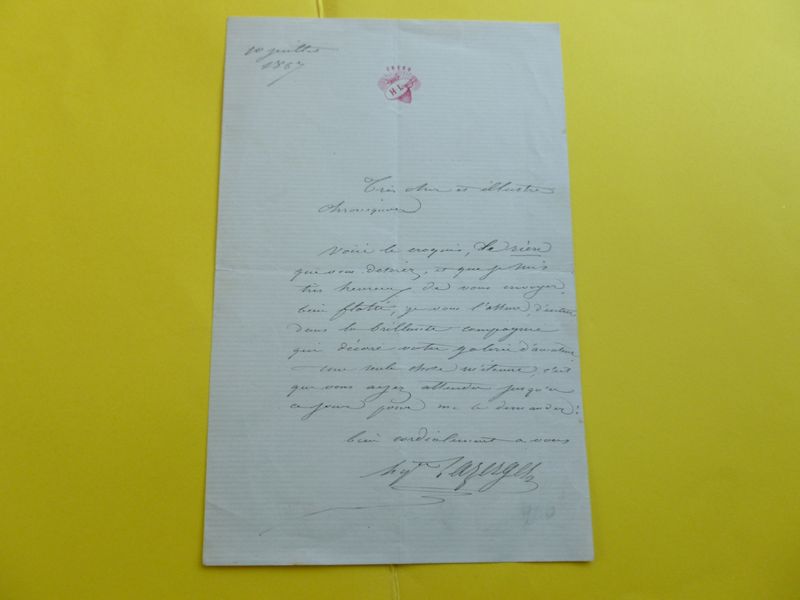 10 juillet
1867
H.L.
Très cher et illustre
chroniqueur
Voici le croquis, le rière
que vous désirez, et que je suis
très heureux de vous envoyer.
bien flatté, je vous l'assure, d'entrer
dans la brillante compagnie
qui décore votre galerie d'amateur
une seule chose m'étonne, c'est
que vous ayez attendu jusqu'à
ce jour pour me le demander!
bien cordialement a vous
hyte Lazerges